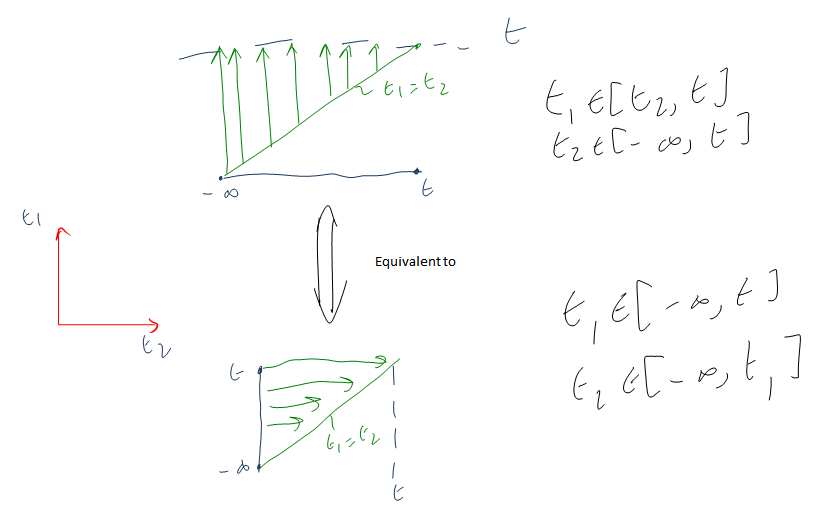 t
t₁ = t₂
t₁ ∈ [t₂, t]
t₂ ∈ [-∞, t]
-∞
t
t₁
Equivalent to
t₂
t₁ ∈ [-∞, t]
t
t₂ ∈ [-∞, t₁]
t₁ = t₂
-∞
t